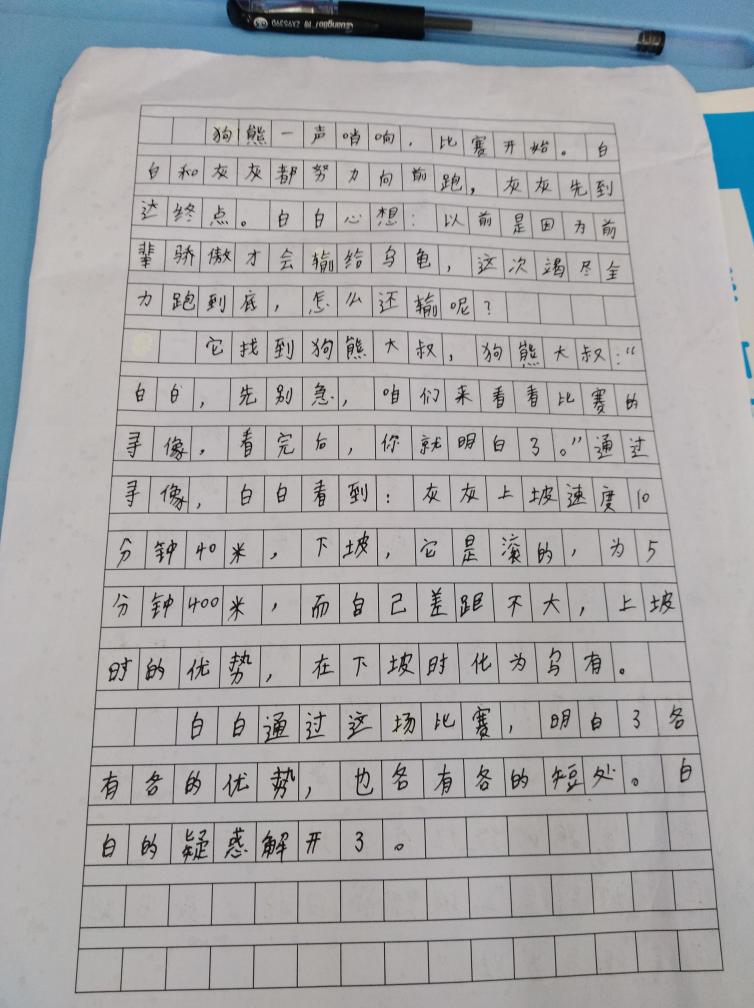 狗熊一声哨响，比赛开始。白
白和灰灰都努力向前跑，灰灰先到
达终点。白白心想：以前是因为前
辈骄傲才会输给乌龟，这次竭尽全
力跑到底，怎么还输呢？
它找到狗熊大叔，狗熊大叔：“
白白，先别急，咱们来看看比赛的
寻像。看完后，你就明白了。”通过
寻像，白白看到：灰灰上坡速度10
分钟40米，下坡，它是滚的，为5
分钟400米，而自己差距不大，上坡
时的优势，在下坡时化为乌有。
白白通过这场比赛，明白了各
有各的优势，也各有各的短处。白
白的疑惑解开了。